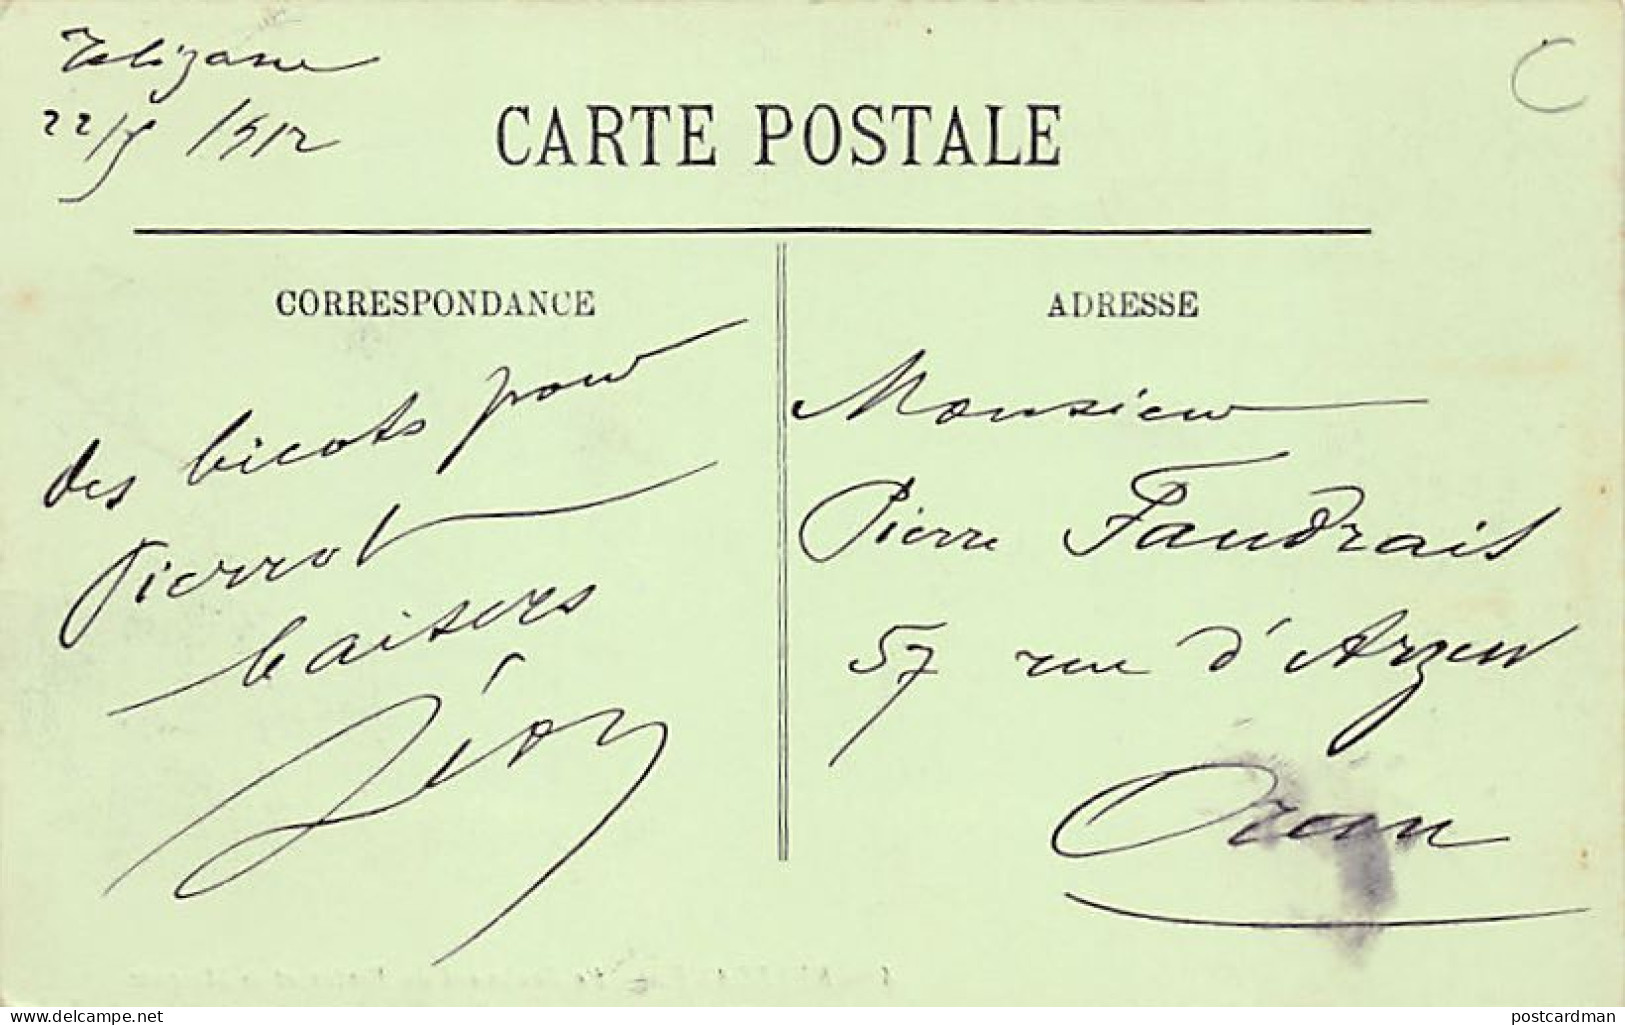 Relizane
22/5 1912
C
CARTE POSTALE
CORRESPONDANCE
des bicots pour
Pierrot
baisers
Léon
ADRESSE
Monsieur
Pierre Faudrais
57 rue d'Arzew
Oran
delcampe.net
postcardman